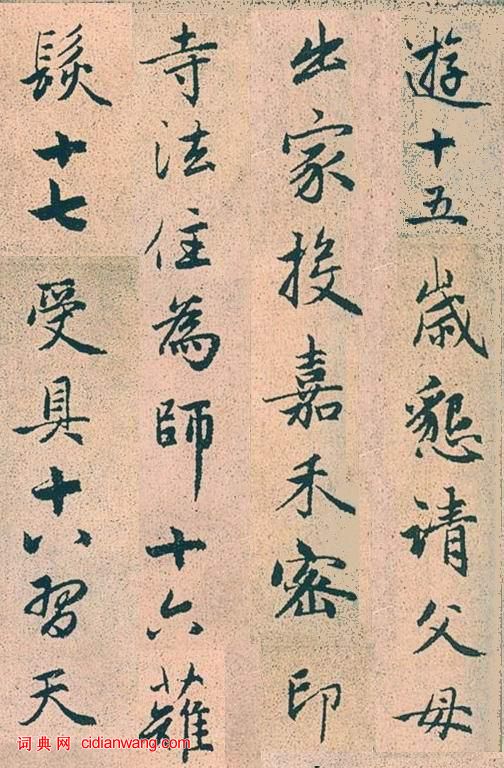 遊十五歲懇请父母
出家投嘉禾密印
寺法住為師十六薙
髮十七受具十八習天
词典网 cidianwang.com